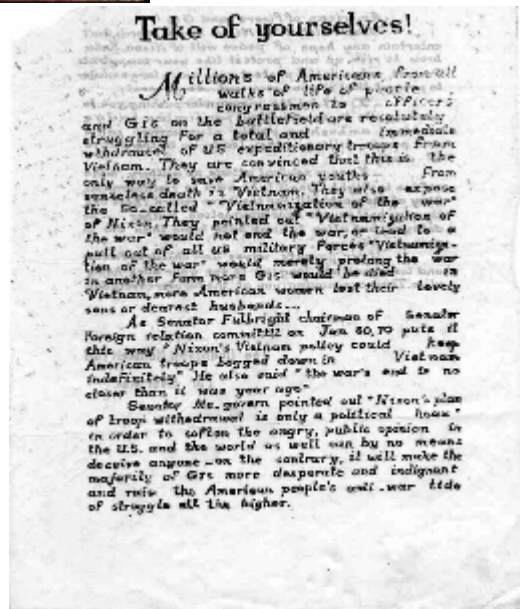 Take of yourselves!
Millions of Americans from all
walks of life of people
congressmen to officers
and GIs on the battlefield are resolutely
struggling for a total and immediate
withdrawal of US expeditionary troops from
Vietnam. They are convinced that this is the
only way to save American youths from
senseless death in Vietnam. They also expose
the so-called "Vietnamization of the war"
of Nixon. They pointed out "Vietnamization of
the war" would not end the war, or lead to a
pull out of all US military forces "Vietnamiza-
tion of the war" would merely prolong the war
in another form more GIs would be died in
Vietnam, more American women lost their lovely
sons or dearest husbands...
As Senator Fulbright chairman of Senator
Foreign relation committee on Jan 30,70 puts it
this way "Nixon's Vietnam policy could keep
American troops bogged down in Vietnam
indefinitely" He also said "the war's end is no
closer than it was year ago"
Senator Mc.govern pointed out "Nixon's plan
of troop withdrawal is only a political hoax"
in order to soften the angry, public opinion in
the U.S. and the world as well can by no means
deceive anyone _on the contrary, it will make the
majority of GIs more desperate and indignant
and raise the American people's anti-war tide
of struggle all the higher.